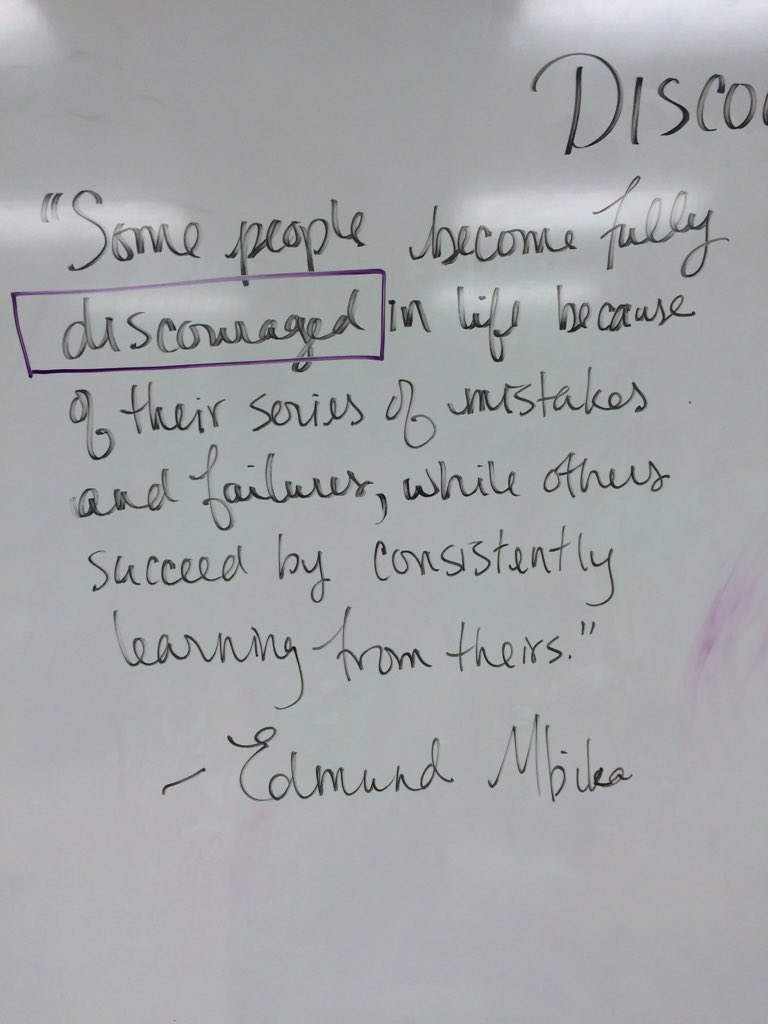 DISCO
"Some people become fully
discouraged in life because
of their series of mistakes
and failures, while others
succeed by consistently
learning from theirs."
- Edmund Mbika